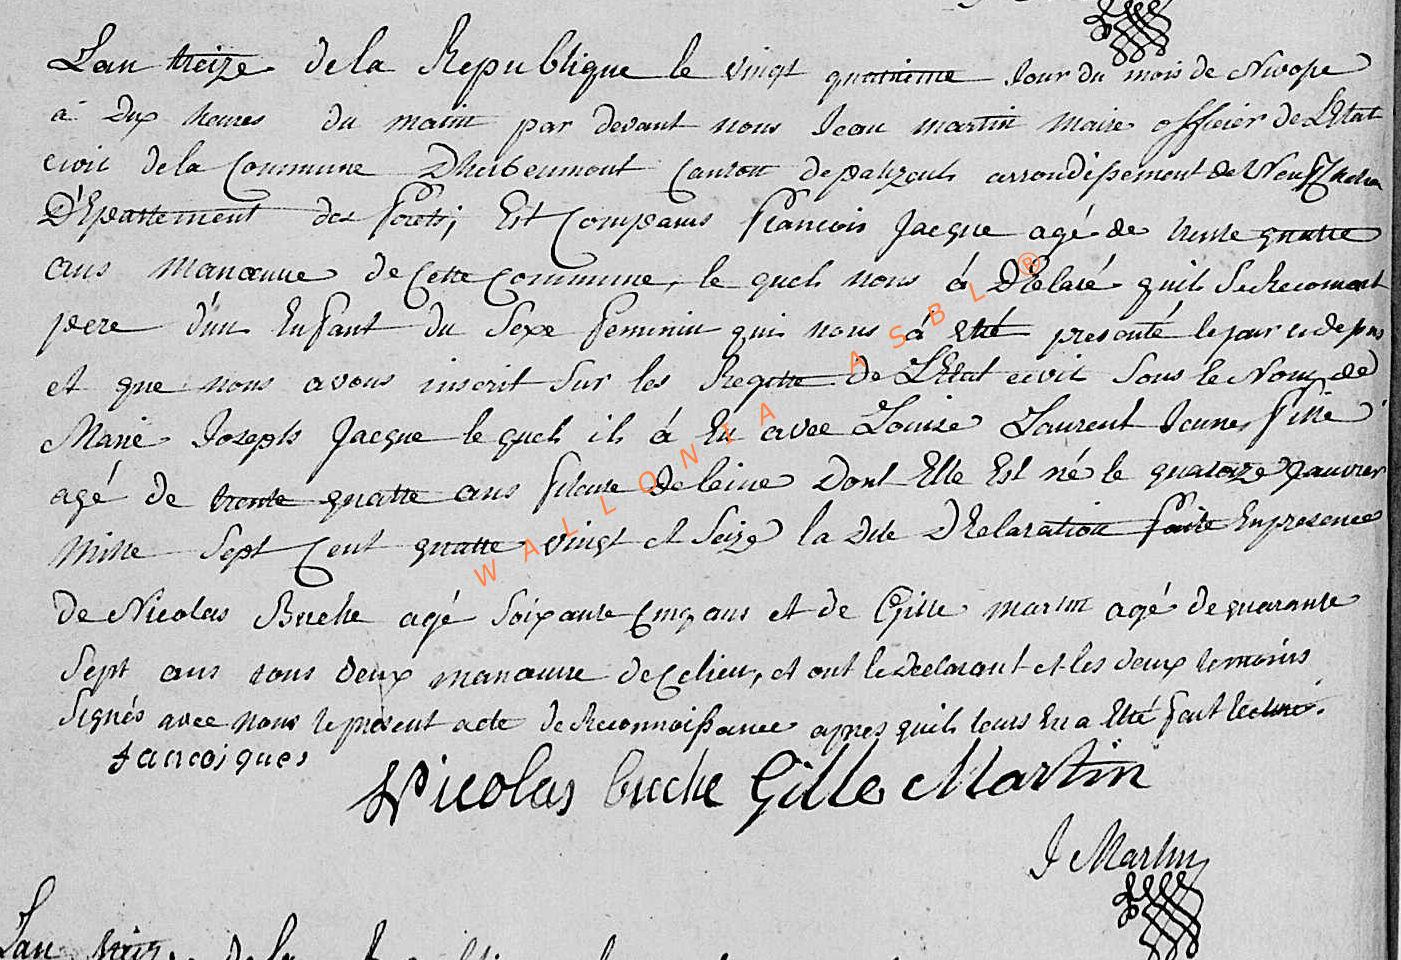 Lan treize de la Republique le vingt quatrieme Jour du mois de Nivose
à Dix heures du matin par devant nous Jean martin maire officier de LEtat
civil de la Commune Dherbeumont Canton de palizeul arrondissement de Neufchateau
DEpartement des forets, Est Comparus francois Jacque agé de trente quatre
ans manœuvre de Cette Commune, le quel nous á Déclaré quil Se Reconnoit
pere d'un Enfant du Sexe feminin qui nous á Eté presenté le jour
et que nous avons inscrit Sur les Regitre de LEtat civil Sous le Nom de
Marie Joseph Jacque le quel il á Eu avec Louise Laurent Jeune fille
agé de trente quatre ans fileuse De leine Dont Elle Est né le quatorze Janvier
mille Sept Cent quatre vingt et Seize la Dite Déclaration faite En presence
de Nicolas Buche agé Soixante Cinq ans et de Gille martin agé de quarante
Sept ans tous deux manœuvre de Celieu, et ont le Declarant et les deux temoins
Signés avec nous le present acte de Reconnoissance apres quil leurs En a Eté fait lecture.
francois ques
Nicolas buche Gille Martin
J Martin
Lan treize de la Republique
WALLONIA ASBL ®